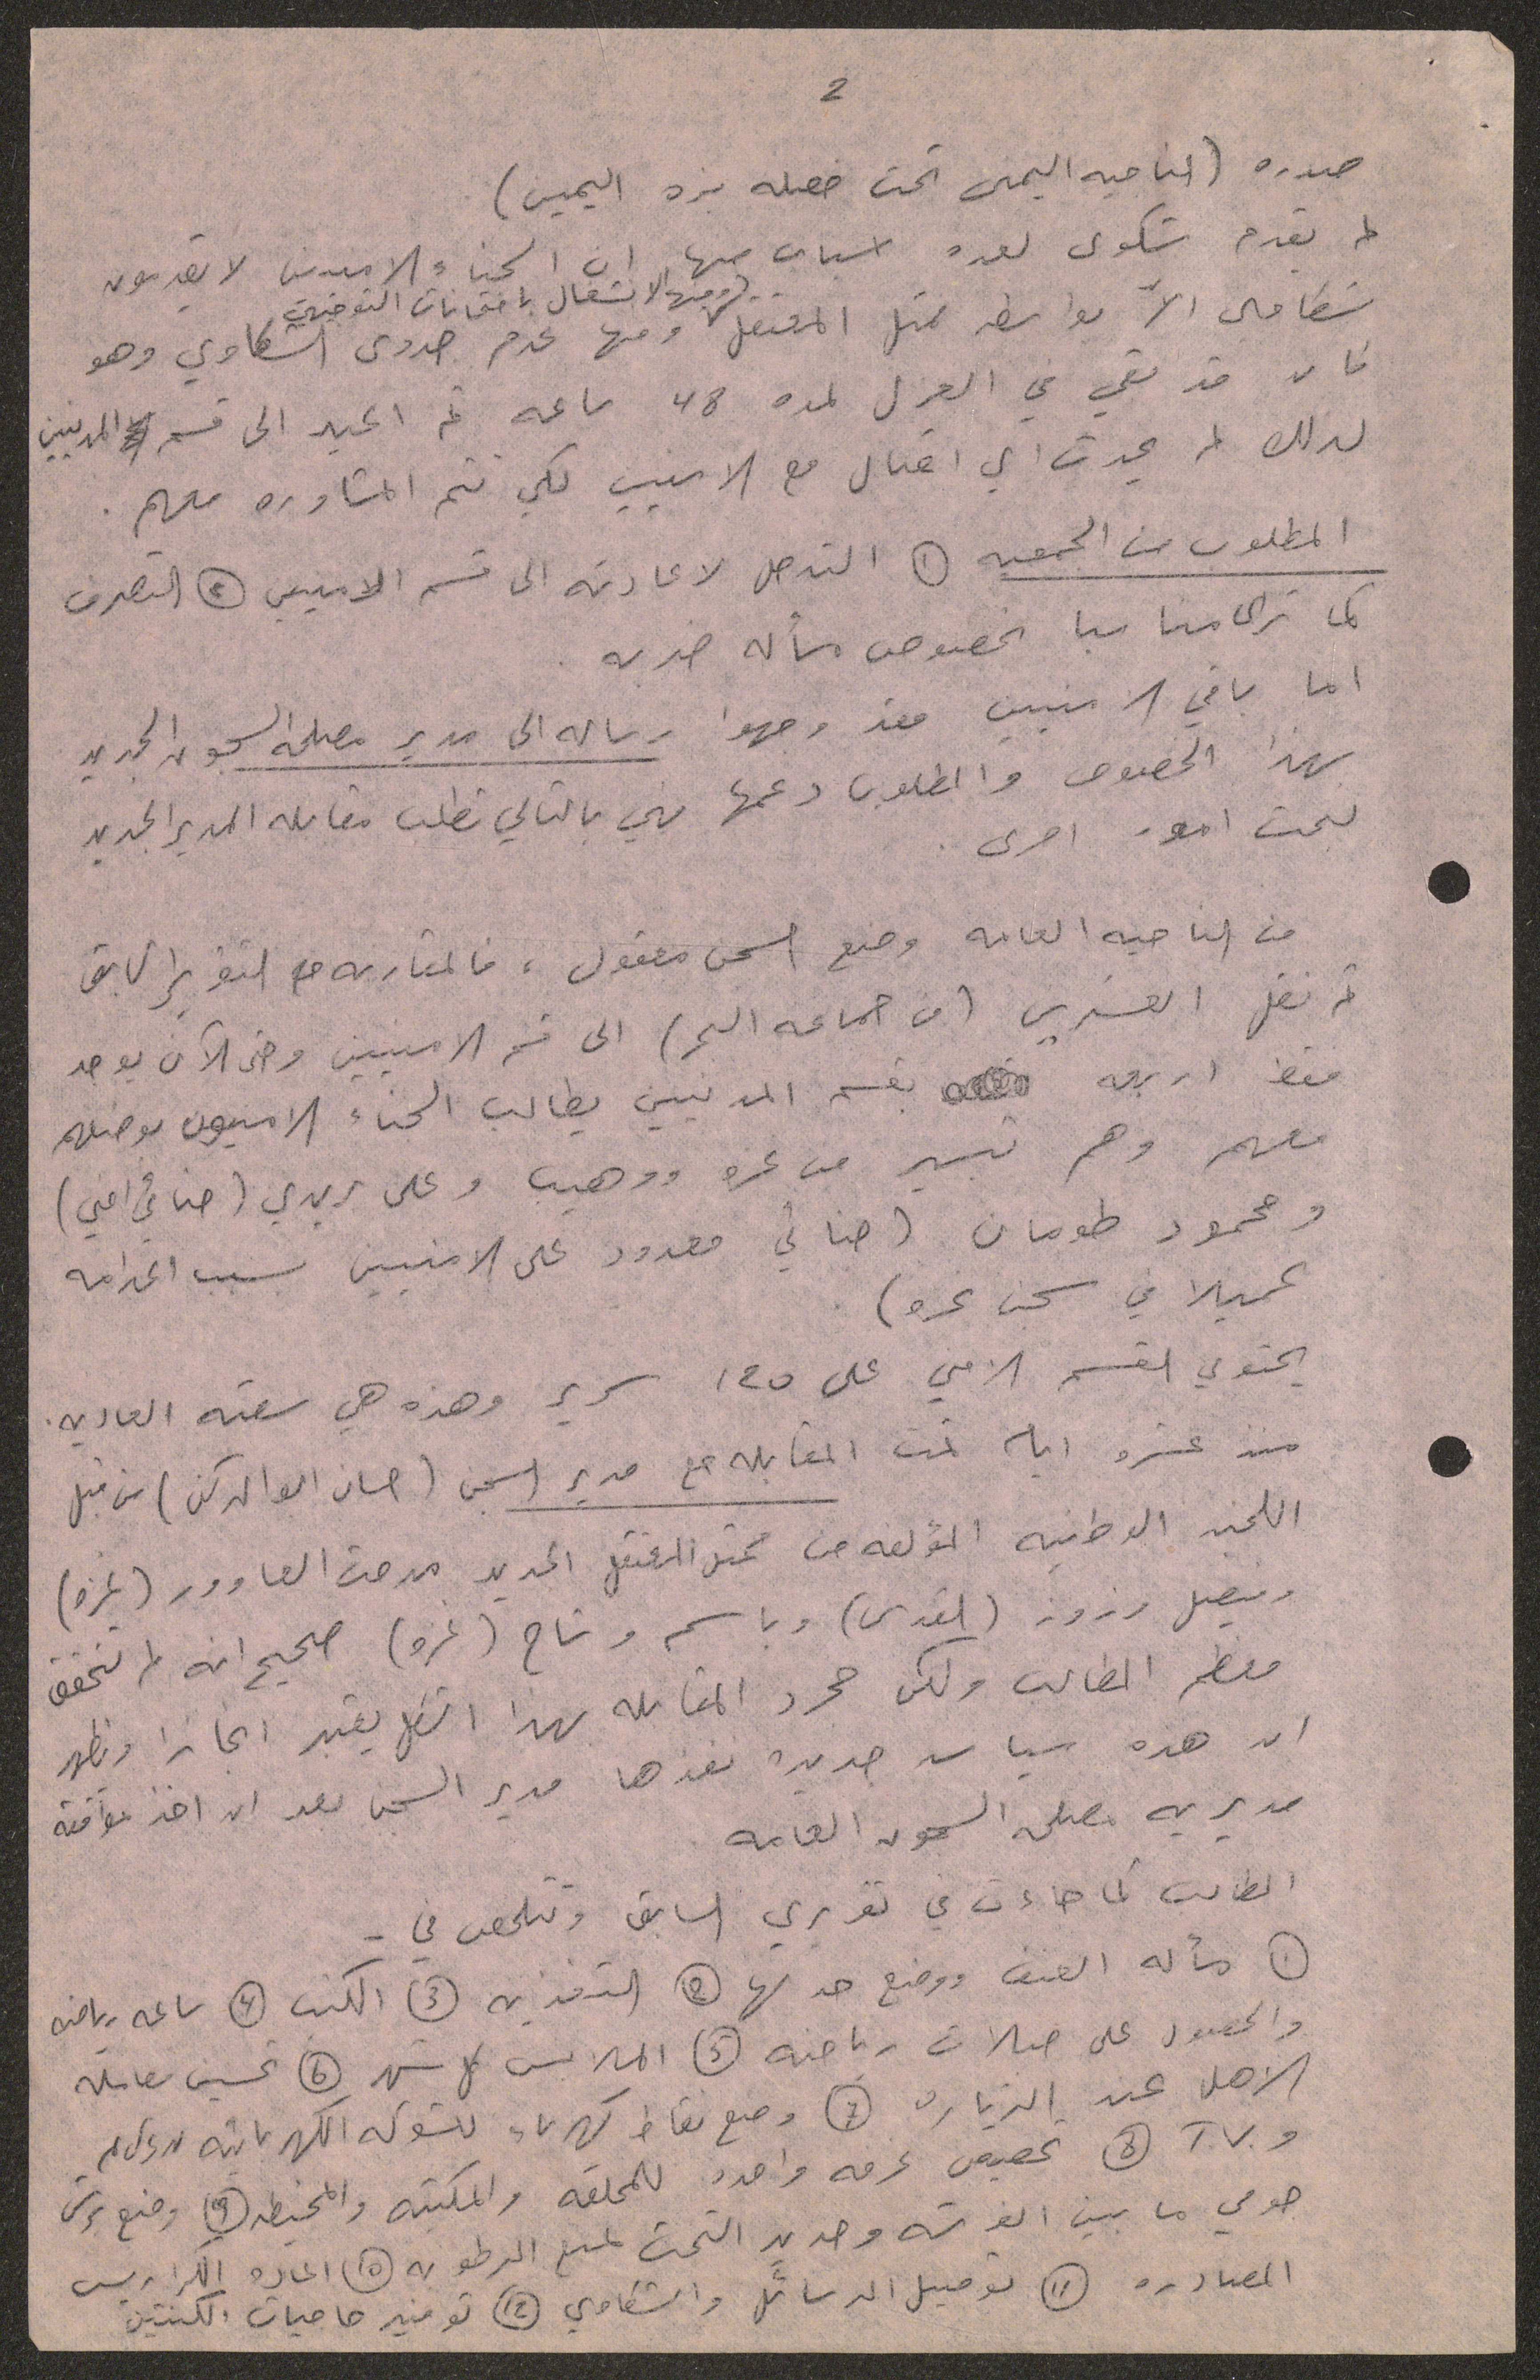 2
صدره (الناحيه اليمنى تحت حصله بزه اليمين)
لم يقدم شكوى لعده اسباب منها ان السجناء الامنيين لا يقدمون
(ومنها الانشغال بامتحانات التوجيهي
شكاوى الا بواسطه ممثل المعتقل ومنها عدم جدوى الشكاوي وهو
كان قد بقي في العزل لمده 48 ساعه ثم اعيد الى قسم المدنيين
لذلك لم يحدث اي اتصال مع الامنيين لكي تتم المشاوره معهم .
المطلوب من الجمعيه ① التدخل لاعادته الى قسم الامنيين ② التصرف
كما تراه مناسبا بخصوص مسأله ضربه .
اما باقي الامنيين فقد وجهوا رساله الى مدير مصلحة السجون الجديد
بهذا الخصوص والمطلوب دعمها فهي بالتالي تطلب مقابله المدير الجديد
لبحث امور اخرى .
من الناحيه العامه وضع السجن معقول ، فالمقارنه مع التقرير السابق
تم نقل العشرين (من جماعه البحر) الى قسم الامنيين وحتى الآن يوجد
فقط اربعه بقسم المدنيين يطالب السجناء الامنيون بوضعهم
معهم وهم تيسير من غزه ووهيب وعلي زيدي (جنائي امني)
ومحمود طومان (جنائي معدود على الامنيين بسبب اعدامه
عميلا في سجن غزه) .
يحتوي القسم الامني على 120 سرير وهذه هي سعته العاديه .
منذ عشره ايام تمت المقابله مع مدير السجن (حسان ابو الركن) من قبل
اللجنه الوطنيه المؤلفه من ممثل المعتقل الجديد مدحت العاوور (غزه)
وفيصل وزوز (القدس) وباسم وشاح (غزه) صحيح انه لم تتحقق
معظم المطالب ولكن مجرد المقابله بهذا الشكل يعتبر انجازا ويظهر
ان هذه سياسه جديده نفذها مدير السجن بعد ان اخذ موافقة
مديريه مصلحه السجون العامه
المطالب كما جاءت في تقريري السابق وتتلخص في -
① مسأله العنف ووضع حد لها ② التغذيه ③ الكتب ④ ساعه رياضه
والحصول على مجلات رياضيه ⑤ الملابس كل شهر ⑥ تحسين معامله
الاهل عند الزياره ⑦ وضع نقاط كهرباء للشوكه الكهربائيه
و T.V. ⑧ تخصيص غرفه واحده للمحلقه والمكتبه والمخيطه ⑨ وضع
جومي ما بين الفرشه وحديد التخت لمنع الرطوبه ⑩ اعاده الكراريس
المصادره ⑪ توصيل الرسائل والشكاوي ⑫ توفير حاجيات الكنتين